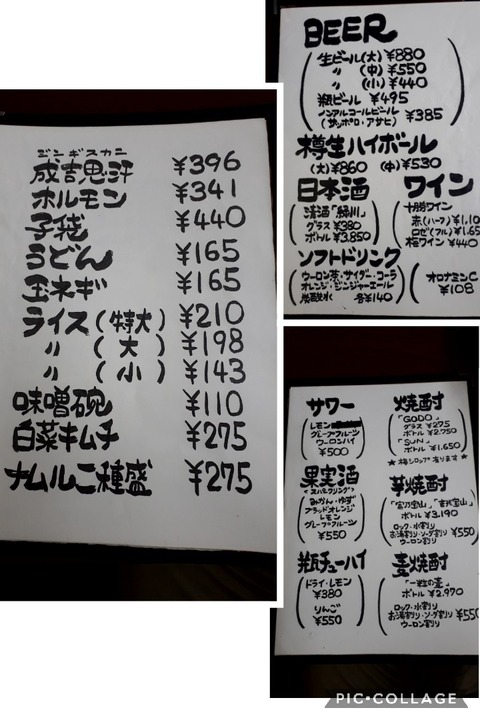 ジンギスカン
成吉思汗 ¥396
ホルモン ¥341
子袋 ¥440
うどん ¥165
玉ネギ ¥165
ライス(特大) ¥210
〃 (大) ¥198
〃 (小) ¥143
味噌碗 ¥110
白菜キムチ ¥275
ナムル二種盛 ¥275
BEER
生ビール(大) ¥880
〃 (中) ¥550
〃 (小) ¥440
瓶ビール ¥495
ノンアルコールビール
(サッポロ・アサヒ) ¥385
樽生ハイボール
(大)¥860 (中)¥530
日本酒
清酒「緑川」
グラス ¥380
ボトル ¥3,850
ワイン
十勝ワイン
赤(ハーフ) ¥1,10
ロゼ(フル) ¥1,65
梅ワイン ¥440
ソフトドリンク
ウーロン茶・サイダー・コーラ
オレンジ・ジンジャーエール
炭酸水 各¥140
オロナミンC
¥108
サワー
レモン
グレープフルーツ
ウーロンハイ
¥500
焼酎
「GODO」
グラス ¥275
ボトル ¥2,750
「SUN」
ボトル ¥1,650
★梅シロップ有ります★
果実酒
<スパークリング>
みかん・ゆず
ブラッドオレンジ
レモン
グレープフルーツ
¥550
芋焼酎
「富乃宝山」「吉兆宝山」
ボトル ¥3,190
ロック・水割り
お湯割り・ソーダ割り ¥550
ウーロン割り
瓶チューハイ
ドライ・レモン
¥380
りんご
¥550
麦焼酎
「一粒の麦」
ボトル ¥2,970
ロック・水割り
お湯割り・ソーダ割り ¥550
ウーロン割り
PIC•COLLAGE